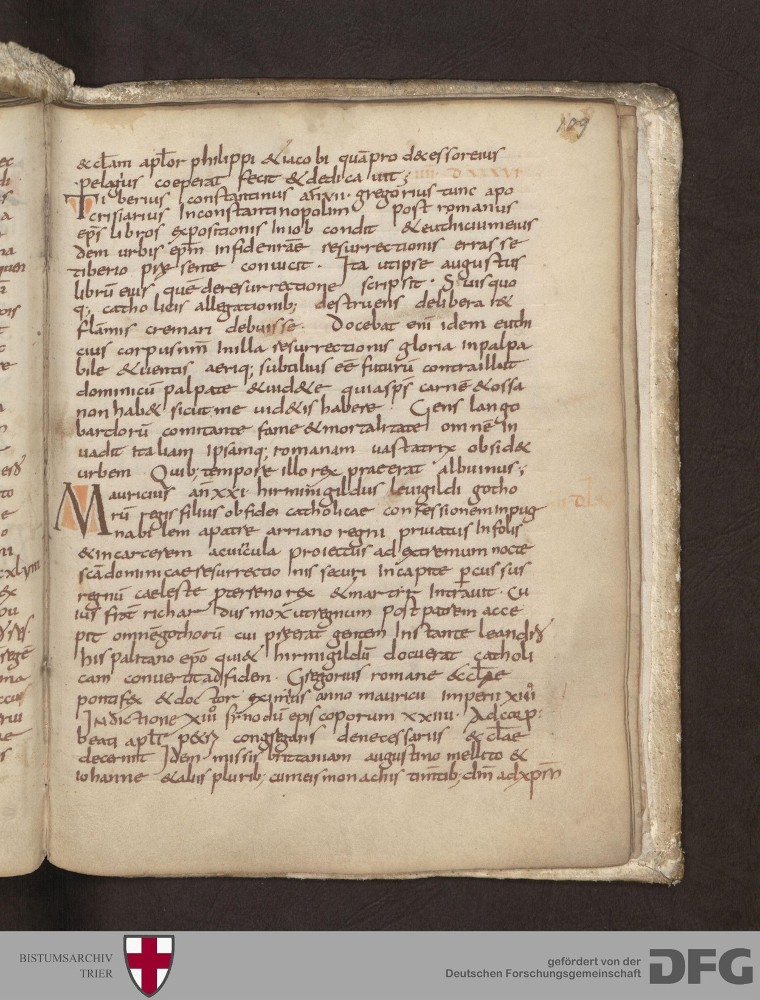 109
& ecłam apłor philippi & iacobi quā pro decessor eius
pelagius coeperat fecit & dedicauit;
Tiberius constantinus ann̄ vii. gregorius tunc apo
crisiarius In constantinopolim post romanus
ep̄s libros expositionis In iob condit & euthicium eius
dem urbis ep̄m In fide nr̄ae resurrectionis errasse
tiberio presente conuicit. Ita ut ipse augustus
librū eius quē de resurrectione scripsit. Suis quo
q; catholicis allegationib; destruens deliberar&
flāmis cremari debuisse. Docebat eni idem euthi
cius corpus nr̄m In illa resurrectionis gloria inpalpa
bile & uentis aeriq; subtilius eē futurū contra illut
dominicū palpate & uid&e quia sp̄s carnē & ossa
non hab& sicut me uid&is habere. Gens lango
bardorū comitante fame & mortalitate omnē In
uadit italiam ipsamq; romanam uastatrix obsid&
urbem. Quib; tempore illo rex praeerat albuinus;
Mauricius ann̄ xxi. hirminigildus leuigildi gotho
rū regis filius ob fidei catholicae confessionem inpug
nabilem a patre arriano regni priuatus Infolis
& in carcerem a cuicula proiectus ad extremum nocte
sc̄a dominicae resurrectionis securi In capite ꝑcussus
regnū caeleste p terreno rex & martir Intrauit. Cu
ius frāt richardus mox ut regnum post patrem acce
pit omnē gothorū cui prerat gentem Instante leandro
hispalitano ep̄o qui & hirmigildū docuerat catholi
cam conuertit ad fidem. Gregorius romane ecclae
pontifex & doctor eximius anno mauricii imperii xiii
Indictione xiii synodū episcoporum xxiiii. Ad corp;
beati apłi p&ri congregans de necessariis ecclae
decernit Idem missis brittaniam augustino mellito &
iohanne & aliis plurib; cum eis monachis timtib; dm̄ ad xpm̄
BISTUMSARCHIV
TRIER
gefördert von der
Deutschen Forschungsgemeinschaft
DFG